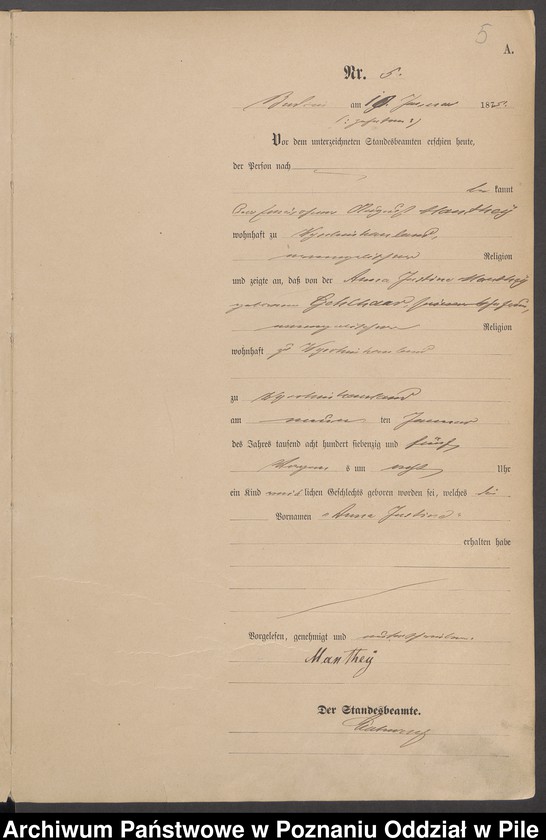 5
A.
Nr. 5.
am 10. Januar 1875.
Vor dem unterzeichneten Standesbeamten erschien heute,
der Person nach
be kannt
August Manthey
wohnhaft zu
evangelischer Religion
und zeigte an, daß von der Anna Justine Manthey
geborenen
evangelischer Religion
wohnhaft zu
zu
am neun ten Januar
des Jahres tausend acht hundert siebenzig und fünf
Morgens um acht Uhr
ein Kind weib lichen Geschlechts geboren worden sei, welches die
Vornamen Anna Justine
erhalten habe
Vorgelesen, genehmigt und unterschrieben.
Manthey
Der Standesbeamte.
Archiwum Państwowe w Poznaniu Oddział w Pile